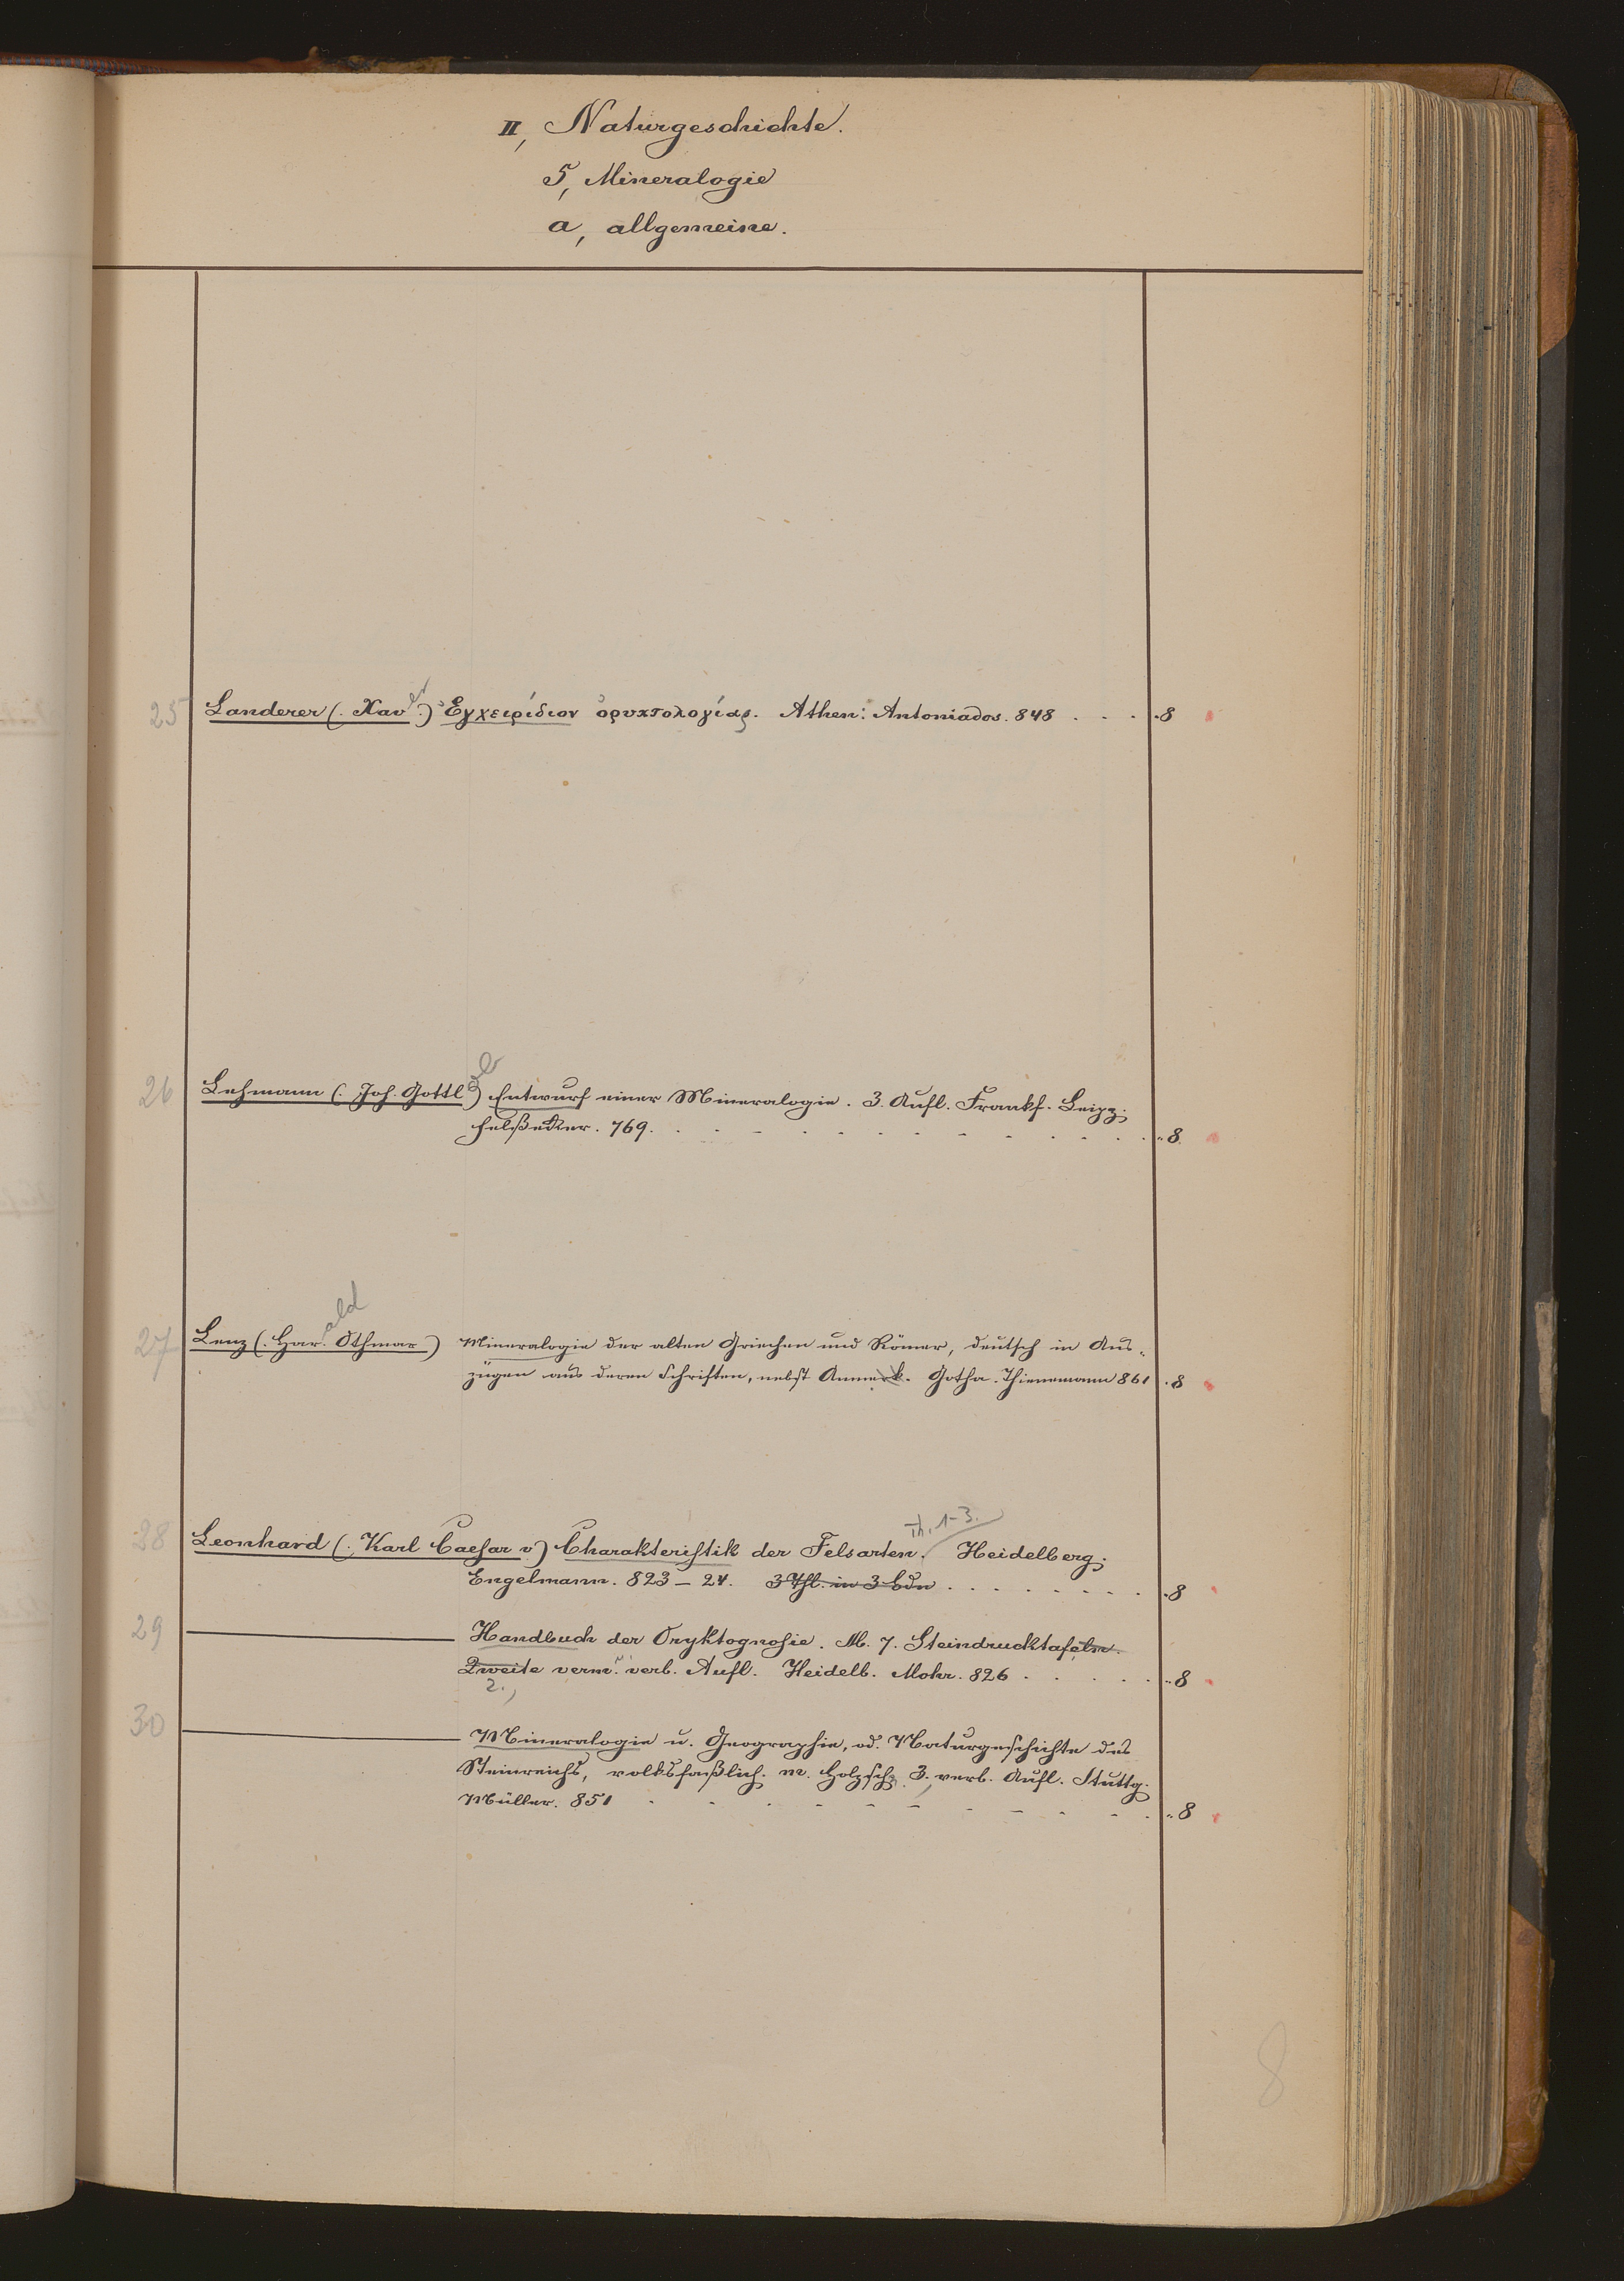 II, Naturgeschichte.
5, Mineralogie
a, allgemeine.
25 Landerer (. Xaver.) Ἐγχειρίδιον ὀρυκτολογίας. Athen: Antoniados. 848 . . . . 8
26 Lehmann (. Joh. Gottlob) Entwurf einer Mineralogie. 3. Aufl. Frankf. Leipz.
Felßecker. 769. . . . . . . . . . . . . . 8.
27 Lenz (. Harald Othmar) Mineralogie der alten Griechen und Römer, deutsch in Aus-
zügen aus deren Schriften, nebst Anmerk. Gotha. Thienemann 861 . 8
Th. 1-3.
28 Leonhard (. Karl Caesar v) Charakteristik der Felsarten. Heidelberg.
Engelmann. 823-24. 3 Thl. in 3 Bdn . . . . . . . . . 8
29 Handbuch der Oryktognosie. M. 7. Steindrucktafeln.
Zweite verm. u. verb. Aufl. Heidelb. Mohr. 826 . . . . . . 8
2.,
30 Mineralogie u. Geographie, od. Naturgeschichte des
Steinreichs, volksfaßlich. m. Holzsch. 3. verb. Aufl. Stuttg.
Müller. 851 . . . . . . . . . . . . 8
8